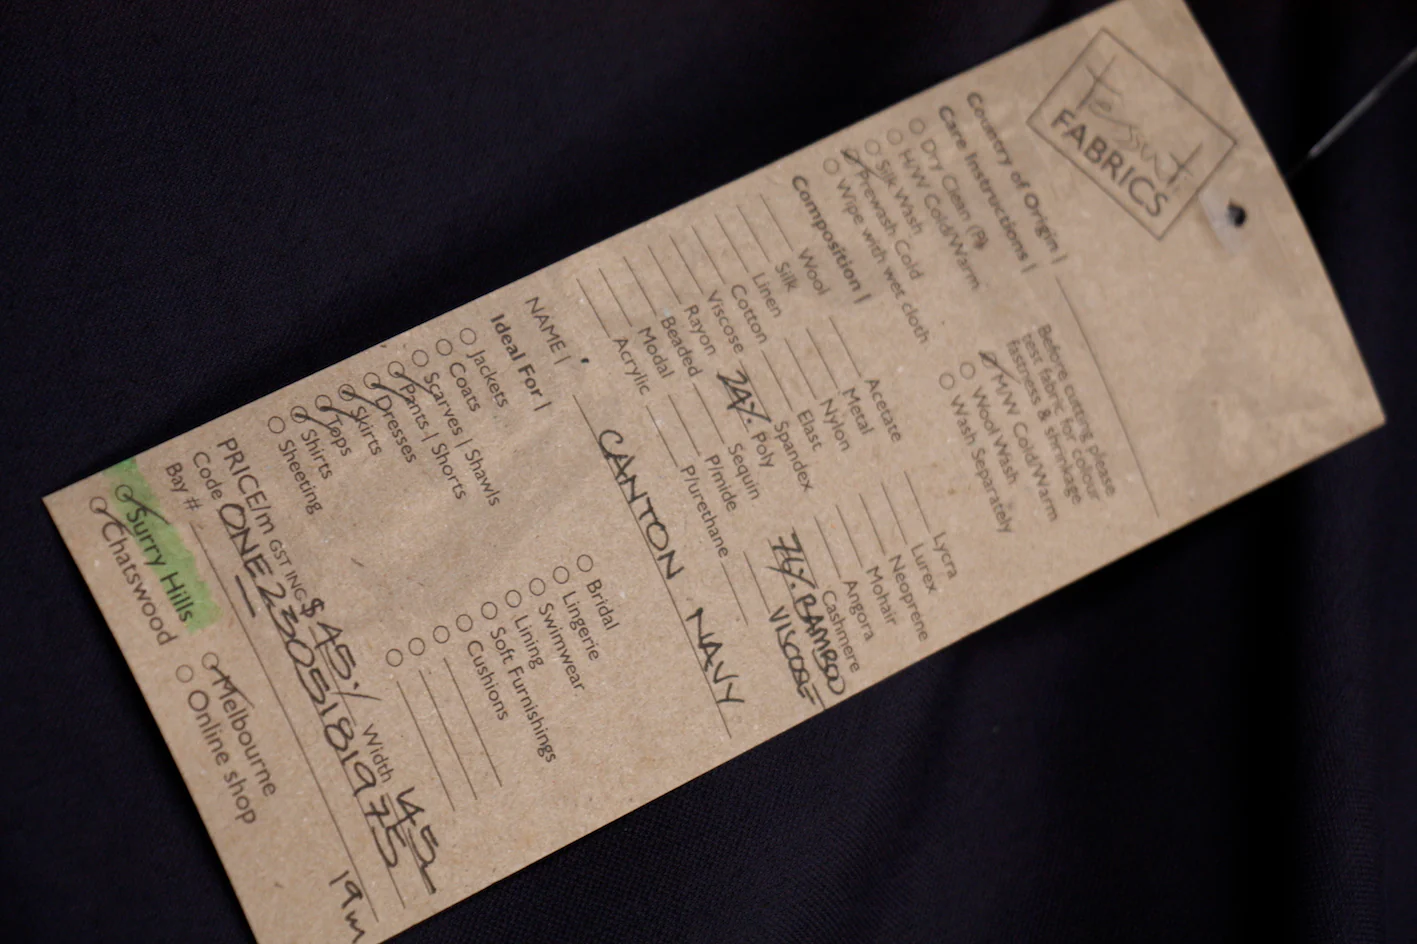 tessuti
FABRICS
Country of Origin |
Care Instructions |
Before cutting please
test fabric for colour
fastness & shrinkage.
Dry Clean (P)
H/W Cold/Warm
Silk Wash
Prewash Cold
Wipe with wet cloth
M/W Cold/Warm
Wool Wash
Wash Separately
Composition |
Wool
Silk
Linen
Cotton
Viscose
Rayon
Beaded
Modal
Acrylic
Acetate
Metal
Nylon
Elast
Spandex
24% Poly
Sequin
P/mide
P/urethane
Lycra
Lurex
Neoprene
Mohair
Angora
Cashmere
76% BAMBOO
VISCOSE
NAME | CANTON NAVY
Ideal For |
Jackets
Coats
Scarves | Shawls
Pants | Shorts
Dresses
Skirts
Tops
Shirts
Sheeting
Bridal
Lingerie
Swimwear
Lining
Soft Furnishings
Cushions
PRICE/m GST INC $45./ Width 145
Code ONE2305181975
Bay # 19m
Surry Hills
Chatswood
Melbourne
Online shop